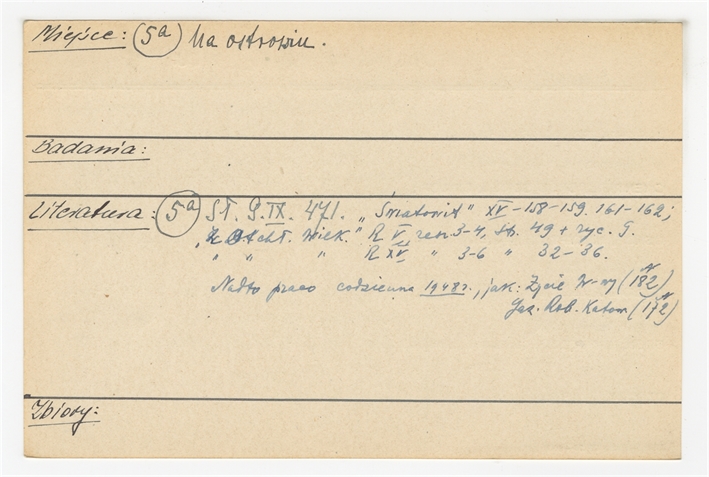 Miejsce: (5a) Na ostrowiu.
Badania:
Literatura: (5a) St. G. IX. 471. „Światowit" XV-158-159. 161-162;
„Z Otchł. Wiek." R V zesz 3-4, st. 49 + ryc. G.
„ „ „ R XV „ 3-6 „ 32-36.
Nadto prasa codzienna 1948 r., jak: Życie W-wy (N 182)
Gaz. Rob. Katow (N 172)
Zbiory: